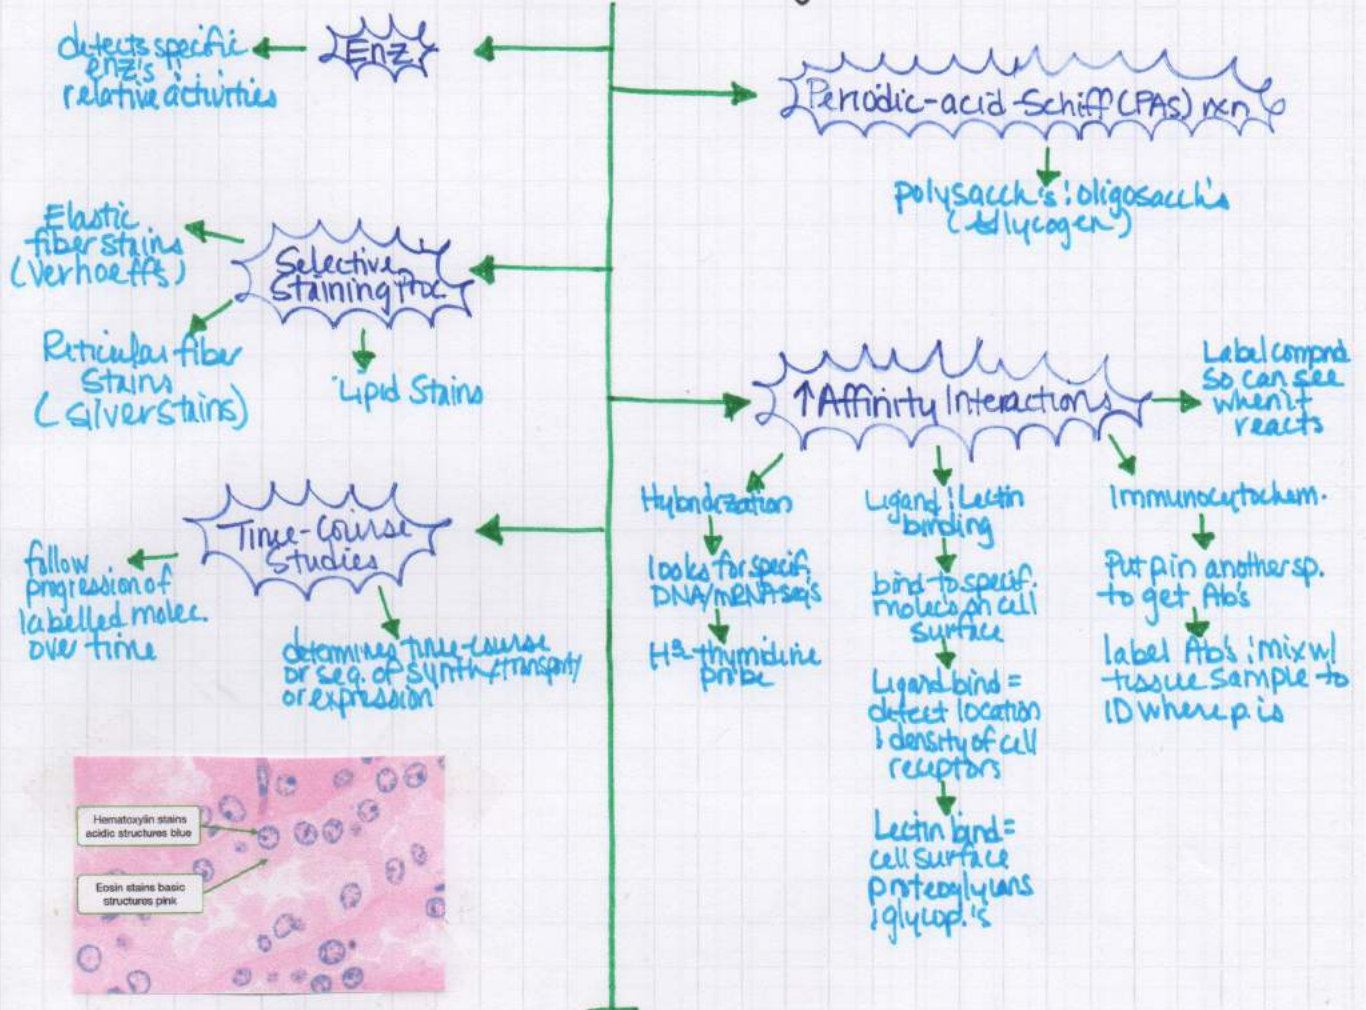 Enz
detects specific
enz's
relative activities
Periodic-acid-Schiff (PAS) rxn
polysacch's : oligosacch's
Selective
Staining Proc.
Elastic
fiber stains
(Verhoeffs)
Reticular fiber
Stains
(silver stains)
Lipid Stains
↑Affinity Interactions
Label compnd
so can see
when it
reacts
Hybridization
looks for specif.
DNA/mRNA seq's
H3-thymidine
probe
Ligand : Lectin
binding
bind to specif.
molecs on cell
surface
Ligand bind =
detect location
: density of cell
receptors
Lectin bind =
cell surface
proteoglycans
: glycop.'s
Immunocytochem.
Put p in another sp.
to get Ab's
label Ab's : mix w/
tissue sample to
ID where p is
Time-Course
Studies
follow
progression of
labelled molec.
over time
determines time-course
or seq. of synth/transport/
or expression
Hematoxylin stains
acidic structures blue
Eosin stains basic
structures pink